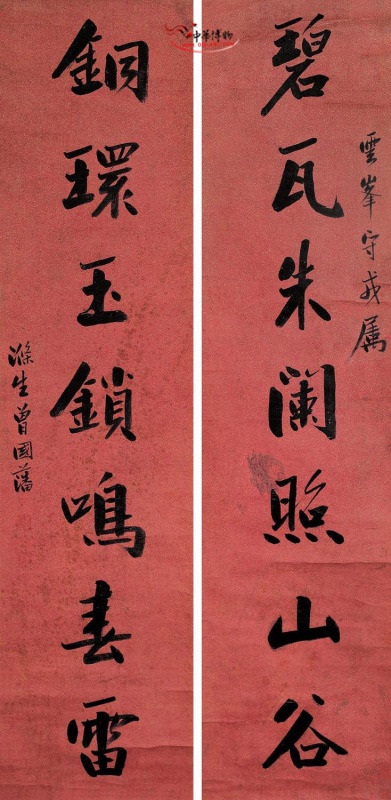 雲峯守戎属
碧瓦朱阑照山谷
銅環玉鎖鳴春雷
滌生曾國藩
中華博物